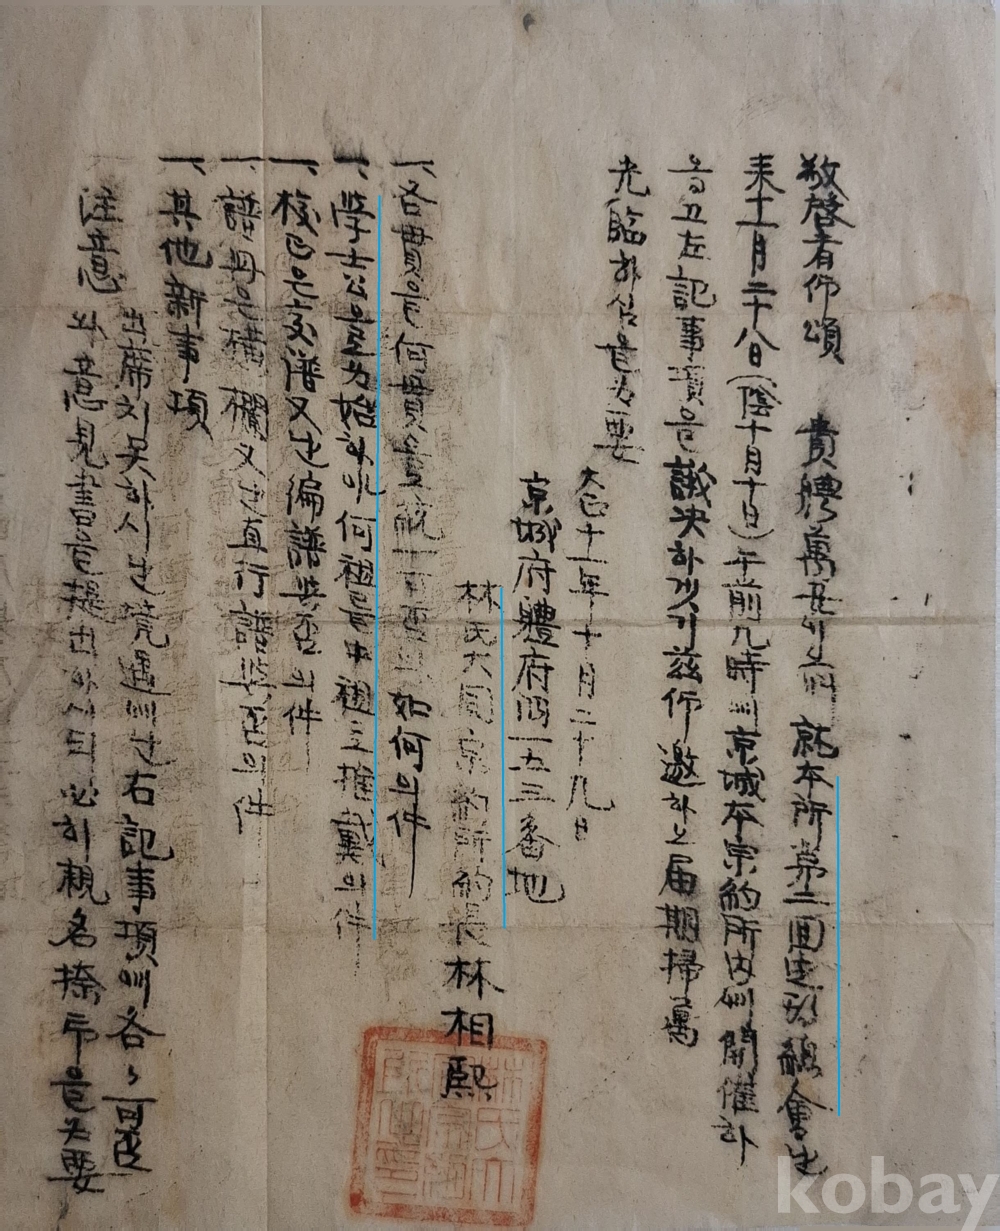 敬啓者仰頌 貴體萬旺 就本所第二回定期總會と
來十一月二十八日(陰十月十日)午前九時에 京城本宗約所內에 開催하
고左記事項을 議決하 玆仰邀하오 届期掃萬
光臨하심을爲要
大正十一年十月二十九日
京城府體府洞一五三番地
林氏大同宗約所約長 林相熙
一、各貫을何貫으로統一可否 如何의件
一、學士公으로爲始하야 何祖를中祖로推戴의件
一、 交譜又는編譜與否의件
一、譜冊은横欄又는直行譜與否의件
一、其他新事項
注意 出席치못하시는 境遇에는右記事項에各々可否
와意見書를提出하시되必히親名捺印을爲要
kobay